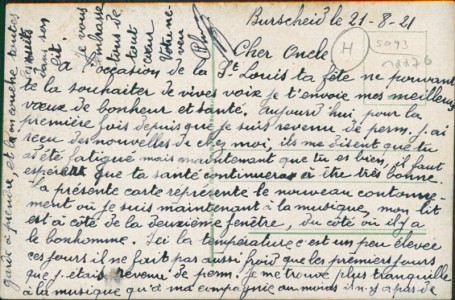 Burscheid le 21-8-21
H
5093
Cher Oncle
à l'occasion de la St Louis ta fête ne pouvant
te la souhaiter de vives voix je t'envoie mes meilleurs
vœux de bonheur et santé. aujourd'hui pour la
première fois depuis que je suis revenu de perm. j'ai
reçu des nouvelles de chez moi, ils me disent que tu
as été fatigué mais maintenant que tu es bien, il faut
espérer que ta santé continuera à être très bonne.
La présente carte représente le nouveau cantonne-
ment où je suis maintenant à la musique, mon lit
est à côté de la deuxième fenêtre, du côté où il y a
le bonhomme. Ici la température c'est un peu élevée
ces jours il ne fait pas aussi froid que les premiers jours
que j'étais revenu de perm. je me trouve plus tranquille
à la musique qu'à ma compagnie au moins il n'y a pas de
garde à prendre et l'on couche toutes
les nuits
dans son
lit.
Je vous
embrasse
tous de
tout
cœur
Votre ne-
veu